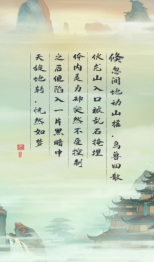 倏忽间地动山摇，鸟兽四散
伏尤山入口被乱石掩埋
体内灵力却突然不受控制
之后便陷入一片黑暗中
天旋地转，恍然如梦